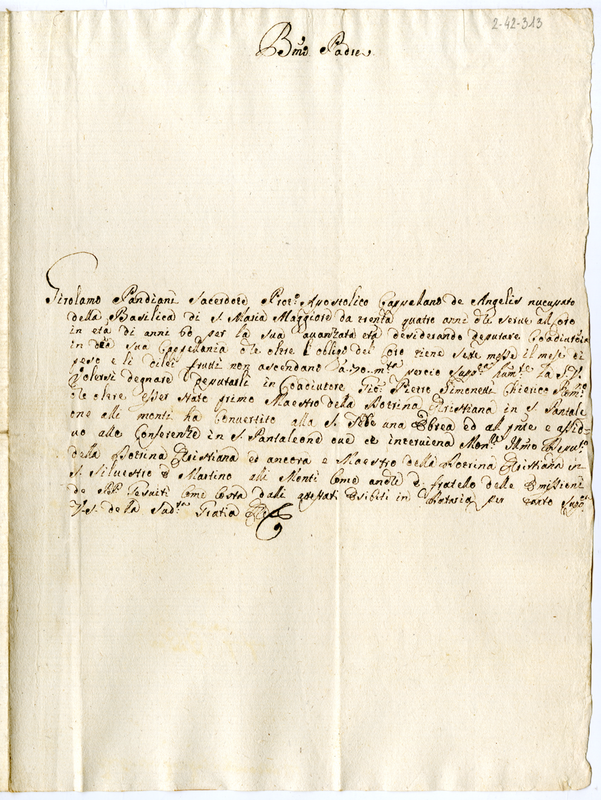 2-42-313
B.mo Padre
Girolamo Pandiani Sacerdote Prot.o Apostolico Cappellano de Angelis nucupato
della Basilica di S. Maria Maggiore da trenta quatro anni che serve al Coro
in età di anni 60 per la sua avanzata età desiderando deputare Coadiutore
in d.ta sua Cappellania che oltre l'obligo del Coro tiene Sette messe il mese di
peso e li di lei frutti non ascendano à 70 m.ta percio supp.ca hum.te la S.V.
volersi degnare deputarli in Coadiutore Gio: Pietro Simonetti Chierico Rom.no
che oltre esser stato primo Maestro della Dottrina Christiana in S. Pantale
one alli monti ha convertito alla S. Fede una Ebrea ed al pnte e assid
uo alle Conferenze in S. Pantaleone ove ce interviene Mon.re Ill.mo Deput.o
della Dottrina Christiana et ancora e Maestro della Dottrina Christiana in
S. Silvestro e Martino alli Monti Come anche di fratello delle Missioni
de PP. Gesuiti Come Costa dalli Esibiti in Dataria per tanto supp.ca
V.S. della Sud.ta Gratia Che